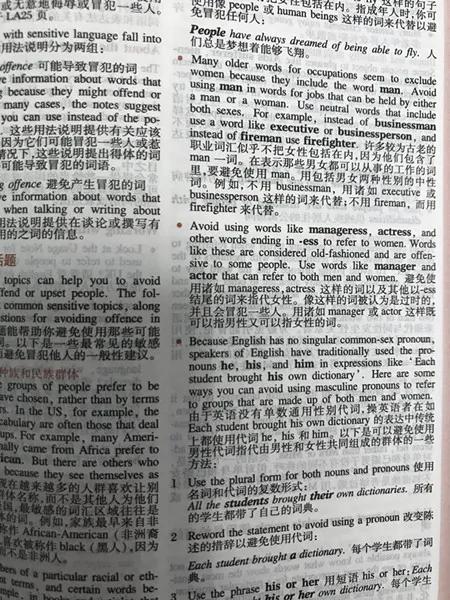 或无意地侮辱或冒犯一些人。
LA25 页。
with sensitive language fall into
用法说明分为两组:
offence 可能导致冒犯的词
ve information about words that
because they might offend or
many cases, the notes suggest
you can use instead of the po-
这些用法说明提供有关应该
因为它们可能冒犯一些人或惹
情况下,这些说明提出得体的词
可能导致冒犯的词语。
offence 避免产生冒犯的词
ve information about words that
when talking or writing about
法说明提供在谈论或撰写有
用的之词的信息。
话题
topics can help you to avoid
fend or upset people. The fol-
common sensitive topics, along
stions for avoiding offence in
题能帮助你避免使用那些可能
词。以下是一些最常见的敏感
避免冒犯他人的一般性建议。
种族和民族群体
groups of people prefer to be
ave chosen, rather than by terms
rs. In the US, for example, the
cabulary are often those that deal
ups. For example, many Ameri-
nally came from Africa prefer to
ican. But there are others who
because they see themselves as
现在越来越多的人群喜欢让别
群体名称,而不是其他人为他们
国,最敏感的词汇区域往往是
的词。例如,家族最早来自非
称作 African-American (非洲裔
喜欢被称作 black (黑人),因为
而不是非洲人。
bers of a particular racial or eth-
nt terms, and certain words be-
使用像 people 或 human beings 这样的词来代替以避
免冒犯任何人:
People have always dreamed of being able to fly. 人
们总是梦想着能够飞翔。
• Many older words for occupations seem to exclude
women because they include the word man. Avoid
using man in words for jobs that can be held by either
a man or a woman. Use neutral words that include
both sexes. For example, instead of businessman
use a word like executive or businessperson, and
instead of fireman use firefighter. 许多较为古老的
职业词汇似乎不把女性包括在内,因为他们包含了
man 一词。在表示那些男女都可以从事的工作的词
里,要避免使用 man。用包括男女两种性别的中性
词。例如,不用 businessman, 用诸如 executive 或
businessperson 这样的词来代替;不用 fireman, 而用
firefighter 来代替。
• Avoid using words like manageress, actress, and
other words ending in -ess to refer to women. Words
like these are considered old-fashioned and are offen-
sive to some people. Use words like manager and
actor that can refer to both men and women. 避免使
用诸如 manageress, actress 这样的词以及其他以-ess
结尾的词来指代女性。像这样的词被认为是过时的,
并且会冒犯一些人。用诸如 manager 或 actor 这样既
可以指男性又可以指女性的词。
• Because English has no singular common-sex pronoun,
speakers of English have traditionally used the pro-
nouns he, his, and him in expressions like ‘Each
student brought his own dictionary’. Here are some
ways you can avoid using masculine pronouns to refer
to groups that are made up of both men and women.
由于英语没有单数通用性别代词,操英语者在如
Each student brought his own dictionary 的表达中传统
上都使用代词 he, his 和 him。以下是可以避免使用
男性代词指代由男性和女性共同组成的群体的一些
方法:
1 Use the plural form for both nouns and pronouns 使用
名词和代词的复数形式:
All the students brought their own dictionaries. 所有
的学生都带了自己的词典。
2 Reword the statement to avoid using a pronoun 改变陈
述的措辞以避免使用代词:
Each student brought a dictionary. 每个学生都带了词
典。
3 Use the phrase his or her 用短语 his or her: Each
his or her own dictionary. 每个学生